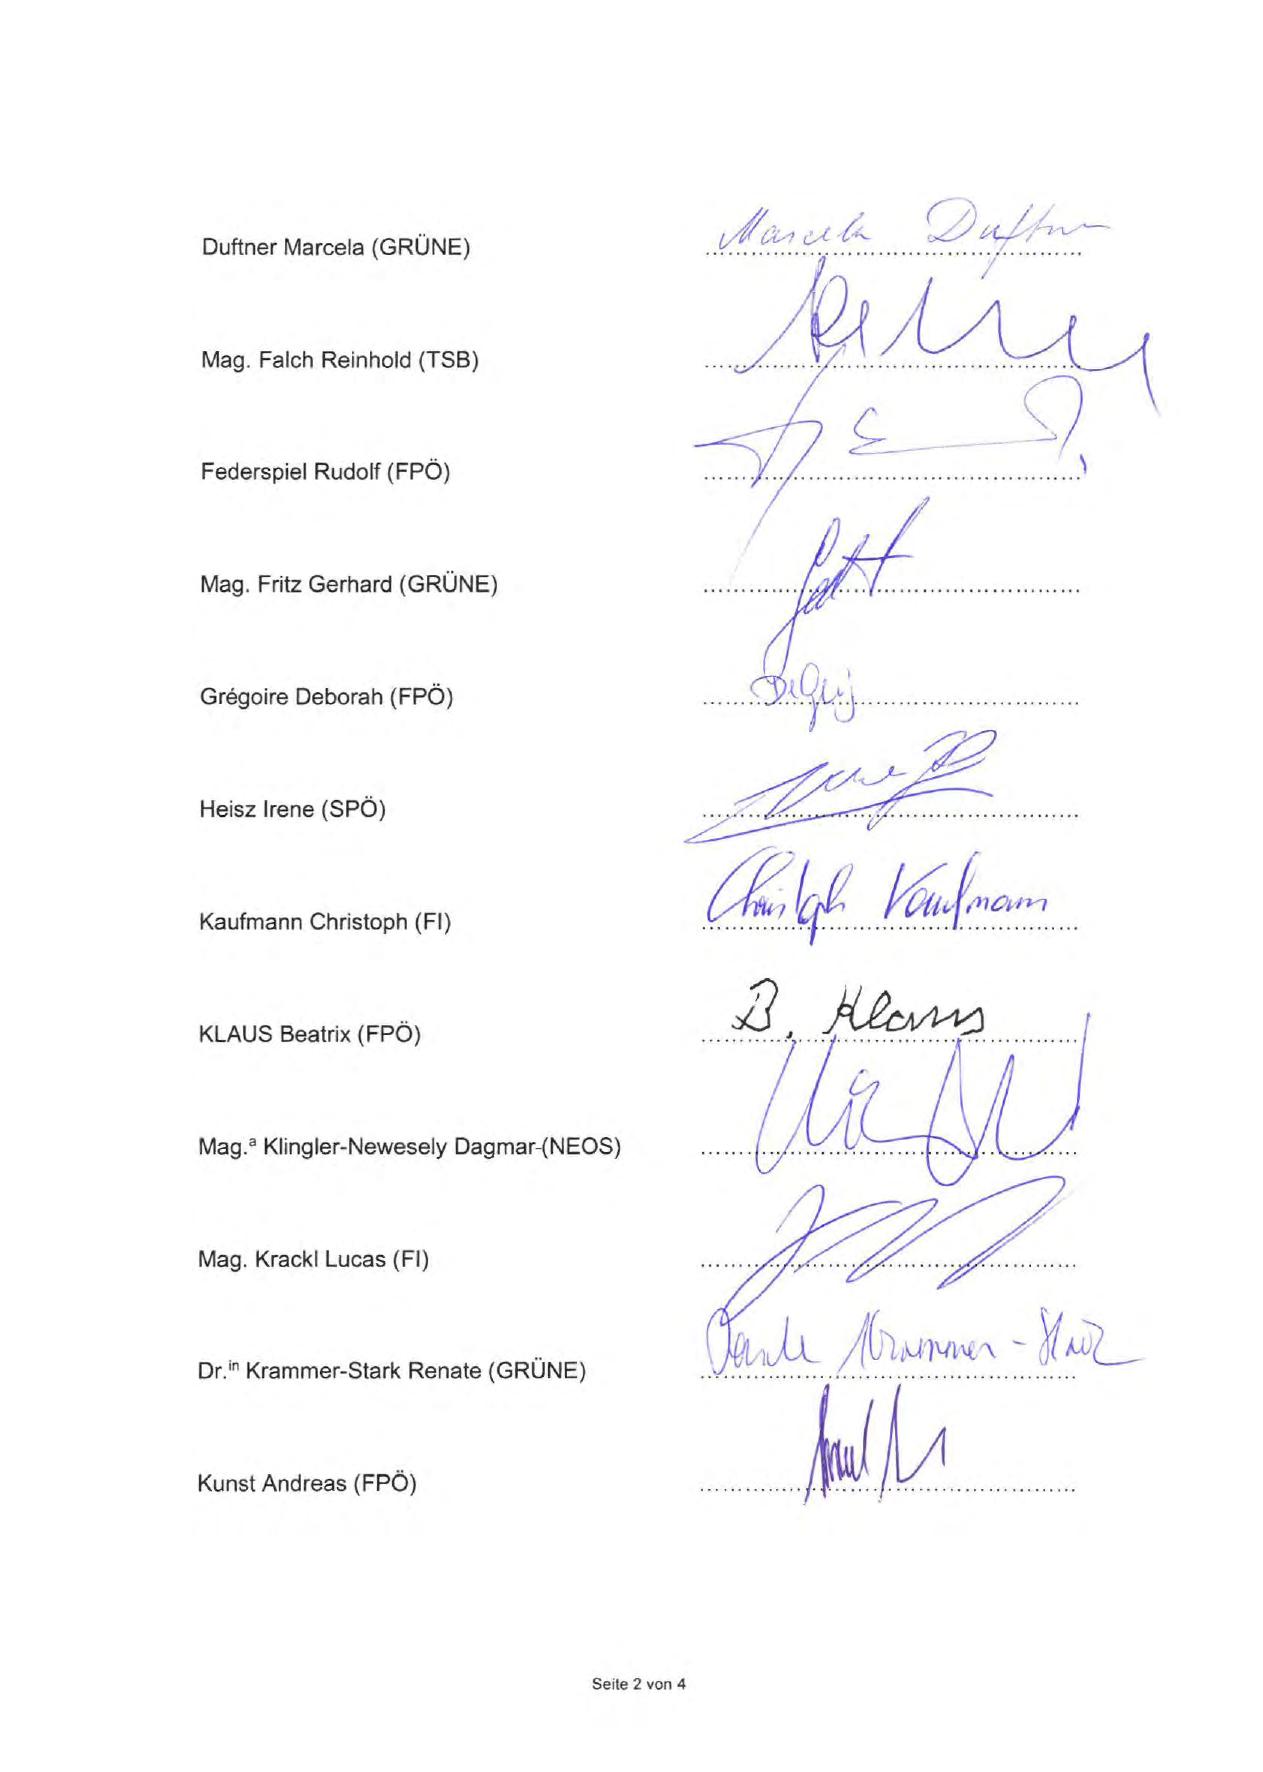 Duftner Marcela (GRÜNE) Marcela Duftner
Mag. Falch Reinhold (TSB)
Federspiel Rudolf (FPÖ)
Mag. Fritz Gerhard (GRÜNE)
Grégoire Deborah (FPÖ)
Heisz Irene (SPÖ)
Kaufmann Christoph (FI) Christoph Kaufmann
KLAUS Beatrix (FPÖ) B. Klaus
Mag.ª Klingler-Newesely Dagmar-(NEOS)
Mag. Krackl Lucas (FI)
Dr.ⁱⁿ Krammer-Stark Renate (GRÜNE) Renate Krammer-Stark
Kunst Andreas (FPÖ)
Seite 2 von 4